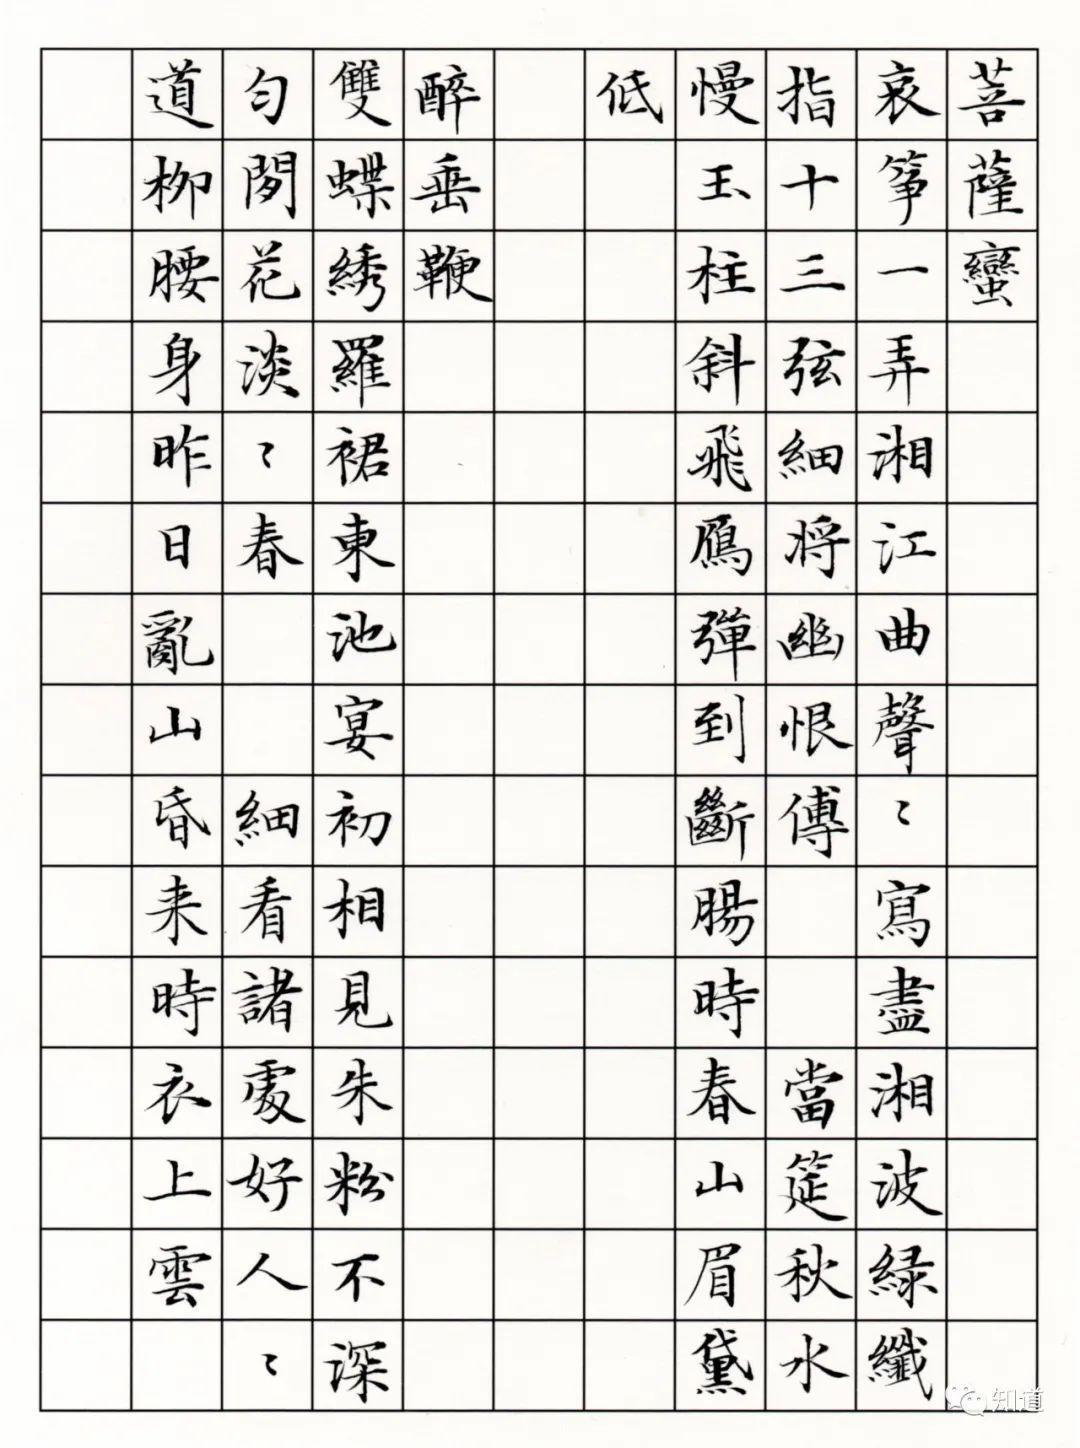 菩薩蠻
哀筝一弄湘江曲聲〻寫盡湘波緑纖
指十三弦細将幽恨傳當筵秋水
慢玉柱斜飛鴈彈到斷腸時春山眉黛
低
醉垂鞭
雙蝶綉羅裙東池宴初相見朱粉不深
匀閑花淡〻春細看諸處好人〻
道柳腰身昨日亂山昏来時衣上雲
知道